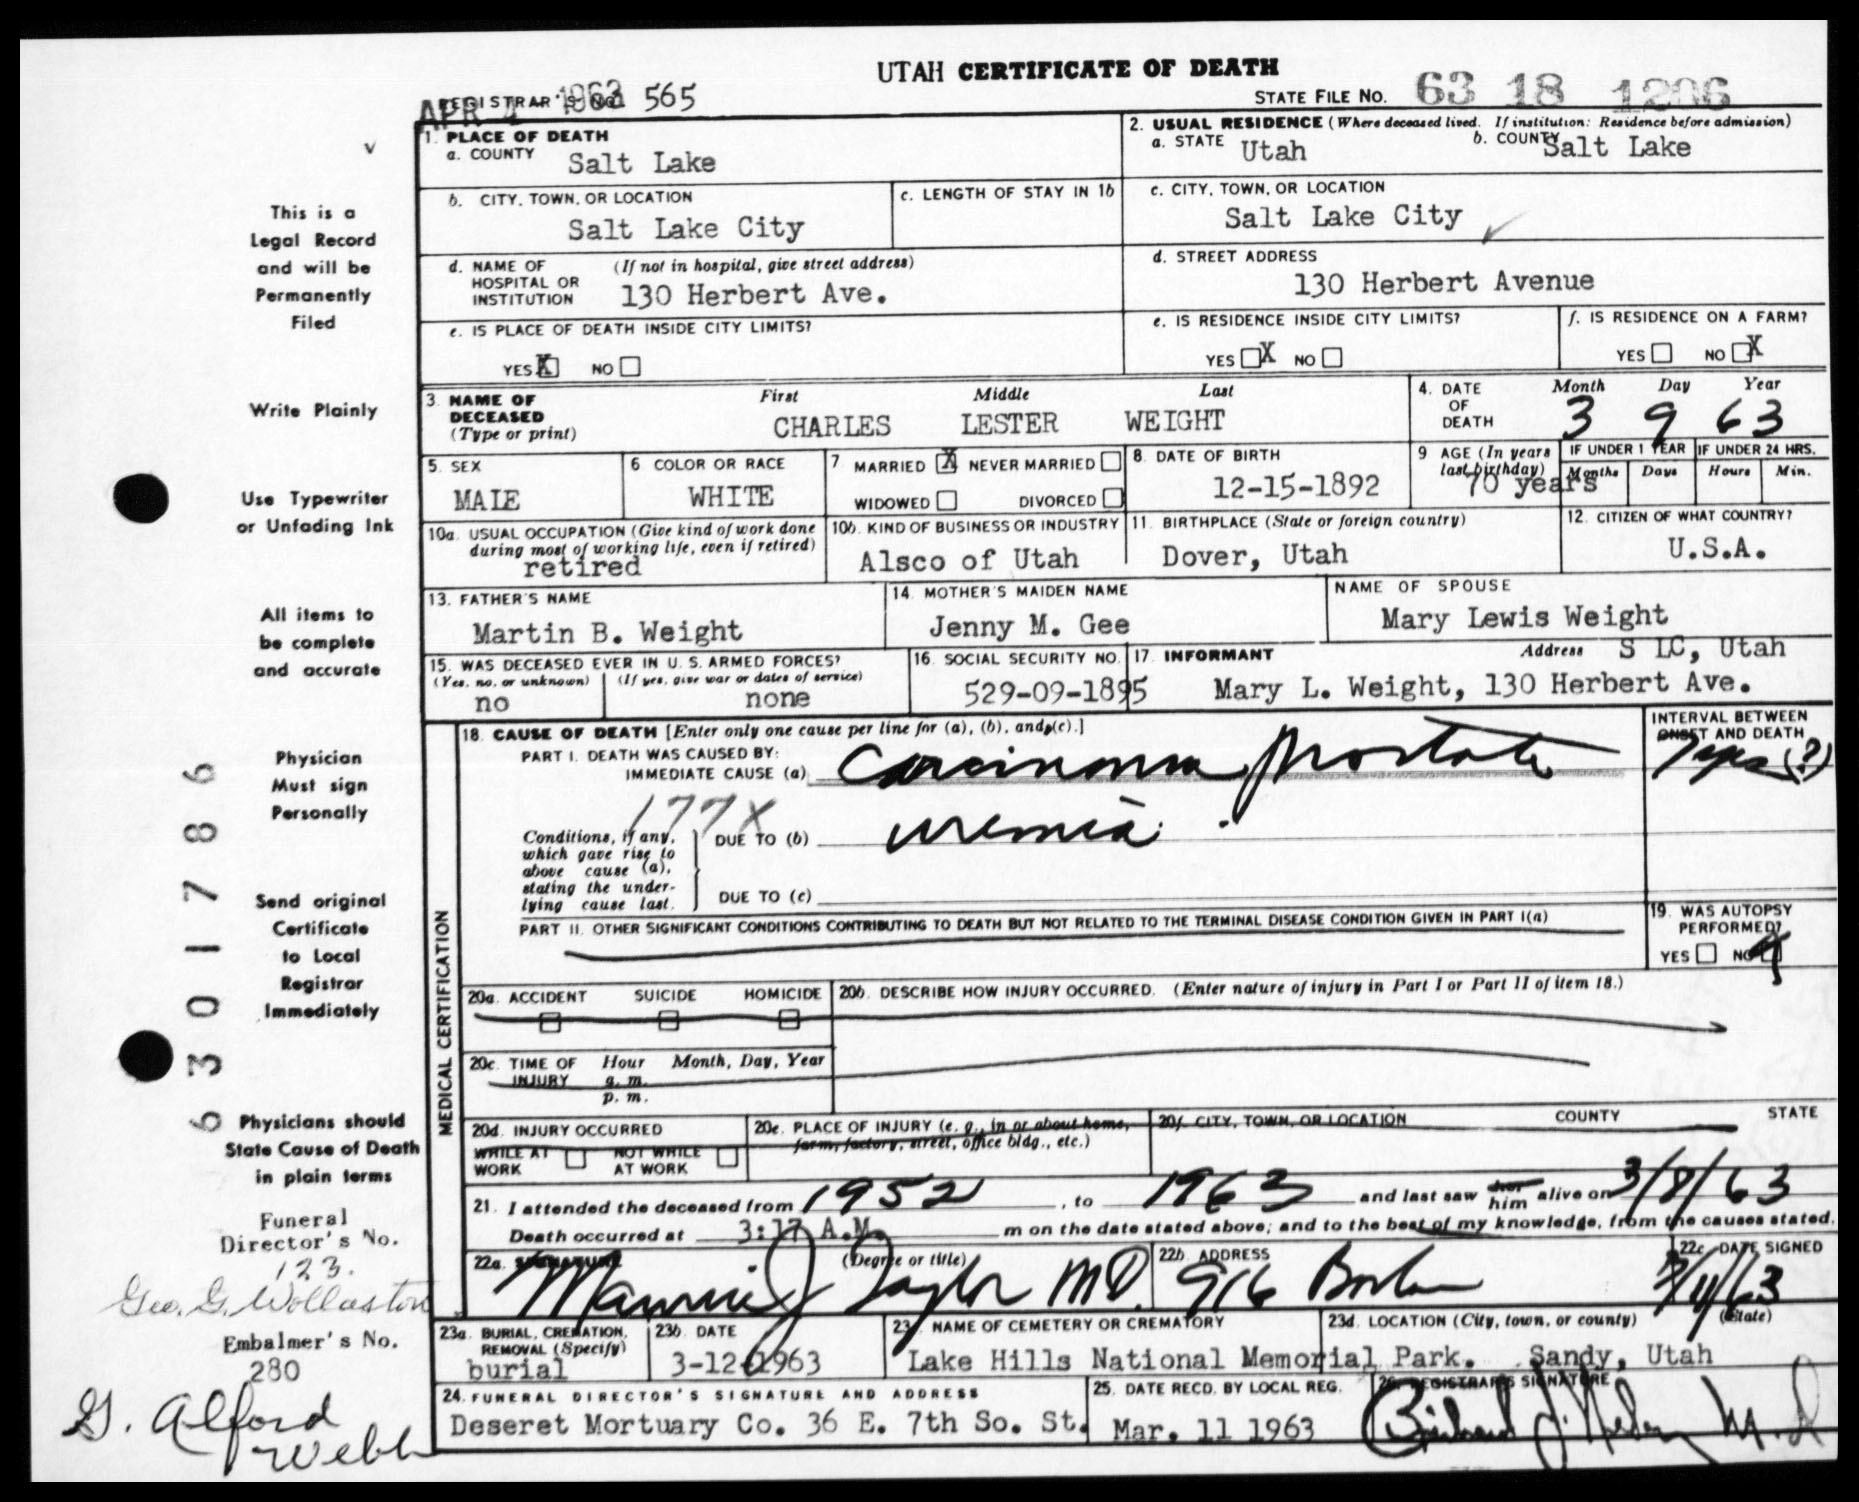 UTAH CERTIFICATE OF DEATH
REGISTRAR'S NO. 565
APR 4 1963
STATE FILE NO. 63 18 1206
1. PLACE OF DEATH
a. COUNTY Salt Lake
2. USUAL RESIDENCE (Where deceased lived. If institution: Residence before admission)
a. STATE Utah b. COUNTY Salt Lake
b. CITY, TOWN, OR LOCATION
Salt Lake City
c. LENGTH OF STAY IN 1b
c. CITY, TOWN, OR LOCATION
Salt Lake City
d. NAME OF HOSPITAL OR INSTITUTION (If not in hospital, give street address)
130 Herbert Ave.
d. STREET ADDRESS
130 Herbert Avenue
e. IS PLACE OF DEATH INSIDE CITY LIMITS?
YES X NO
e. IS RESIDENCE INSIDE CITY LIMITS?
YES X NO
f. IS RESIDENCE ON A FARM?
YES NO X
3. NAME OF DECEASED (Type or print)
First Middle Last
CHARLES LESTER WEIGHT
4. DATE OF DEATH
Month Day Year
3 9 63
5. SEX
MALE
6 COLOR OR RACE
WHITE
7 MARRIED X NEVER MARRIED
WIDOWED DIVORCED
8. DATE OF BIRTH
12-15-1892
9 AGE (In years last birthday)
70 years
IF UNDER 1 YEAR
Months Days
IF UNDER 24 HRS.
Hours Min.
10a. USUAL OCCUPATION (Give kind of work done during most of working life, even if retired)
retired
10b. KIND OF BUSINESS OR INDUSTRY
Alsco of Utah
11. BIRTHPLACE (State or foreign country)
Dover, Utah
12. CITIZEN OF WHAT COUNTRY?
U.S.A.
13. FATHER'S NAME
Martin B. Weight
14. MOTHER'S MAIDEN NAME
Jenny M. Gee
NAME OF SPOUSE
Mary Lewis Weight
15. WAS DECEASED EVER IN U. S. ARMED FORCES?
(Yes, no, or unknown) (If yes, give war or dates of service)
no none
16. SOCIAL SECURITY NO.
529-09-1895
17. INFORMANT Address S LC, Utah
Mary L. Weight, 130 Herbert Ave.
MEDICAL CERTIFICATION
18. CAUSE OF DEATH [Enter only one cause per line for (a), (b), and (c).]
PART I. DEATH WAS CAUSED BY:
IMMEDIATE CAUSE (a) Carcinoma Prostate
INTERVAL BETWEEN ONSET AND DEATH
177X
Conditions, if any, which gave rise to above cause (a), stating the underlying cause last.
DUE TO (b) uremia
DUE TO (c)
PART II. OTHER SIGNIFICANT CONDITIONS CONTRIBUTING TO DEATH BUT NOT RELATED TO THE TERMINAL DISEASE CONDITION GIVEN IN PART I(a)
19. WAS AUTOPSY PERFORMED?
YES NO
20a. ACCIDENT SUICIDE HOMICIDE
20b. DESCRIBE HOW INJURY OCCURRED. (Enter nature of injury in Part I or Part II of item 18.)
20c. TIME OF INJURY Hour Month, Day, Year
a. m.
p. m.
20d. INJURY OCCURRED
WHILE AT WORK NOT WHILE AT WORK
20e. PLACE OF INJURY (e. g., in or about home, farm, factory, street, office bldg., etc.)
20f. CITY, TOWN, OR LOCATION COUNTY STATE
21. I attended the deceased from 1952, to 1963 and last saw her him alive on 3/8/63
Death occurred at 3:17 A.M. m on the date stated above; and to the best of my knowledge, from the causes stated.
22a. SIGNATURE (Degree or title)
Maurice J Taylor MD.
22b ADDRESS
916 Boston
22c. DATE SIGNED
3/11/63
23a. BURIAL, CREMATION, REMOVAL (Specify)
burial
23b. DATE
3-12-1963
23 NAME OF CEMETERY OR CREMATORY
Lake Hills National Memorial Park.
23d. LOCATION (City, town, or county) (State)
Sandy, Utah
24. FUNERAL DIRECTOR'S SIGNATURE AND ADDRESS
Deseret Mortuary Co. 36 E. 7th So. St.
25. DATE RECD. BY LOCAL REG.
Mar. 11 1963
26. REGISTRAR'S SIGNATURE
This is a
Legal Record
and will be
Permanently
Filed
Write Plainly
Use Typewriter
or Unfading Ink
All items to
be complete
and accurate
Physician
Must sign
Personally
Send original
Certificate
to Local
Registrar
Immediately
Physicians should
State Cause of Death
in plain terms
Funeral
Director's No.
123.
Geo. G. Wollaston
Embalmer's No.
280
G. Alford
Webb
6301786